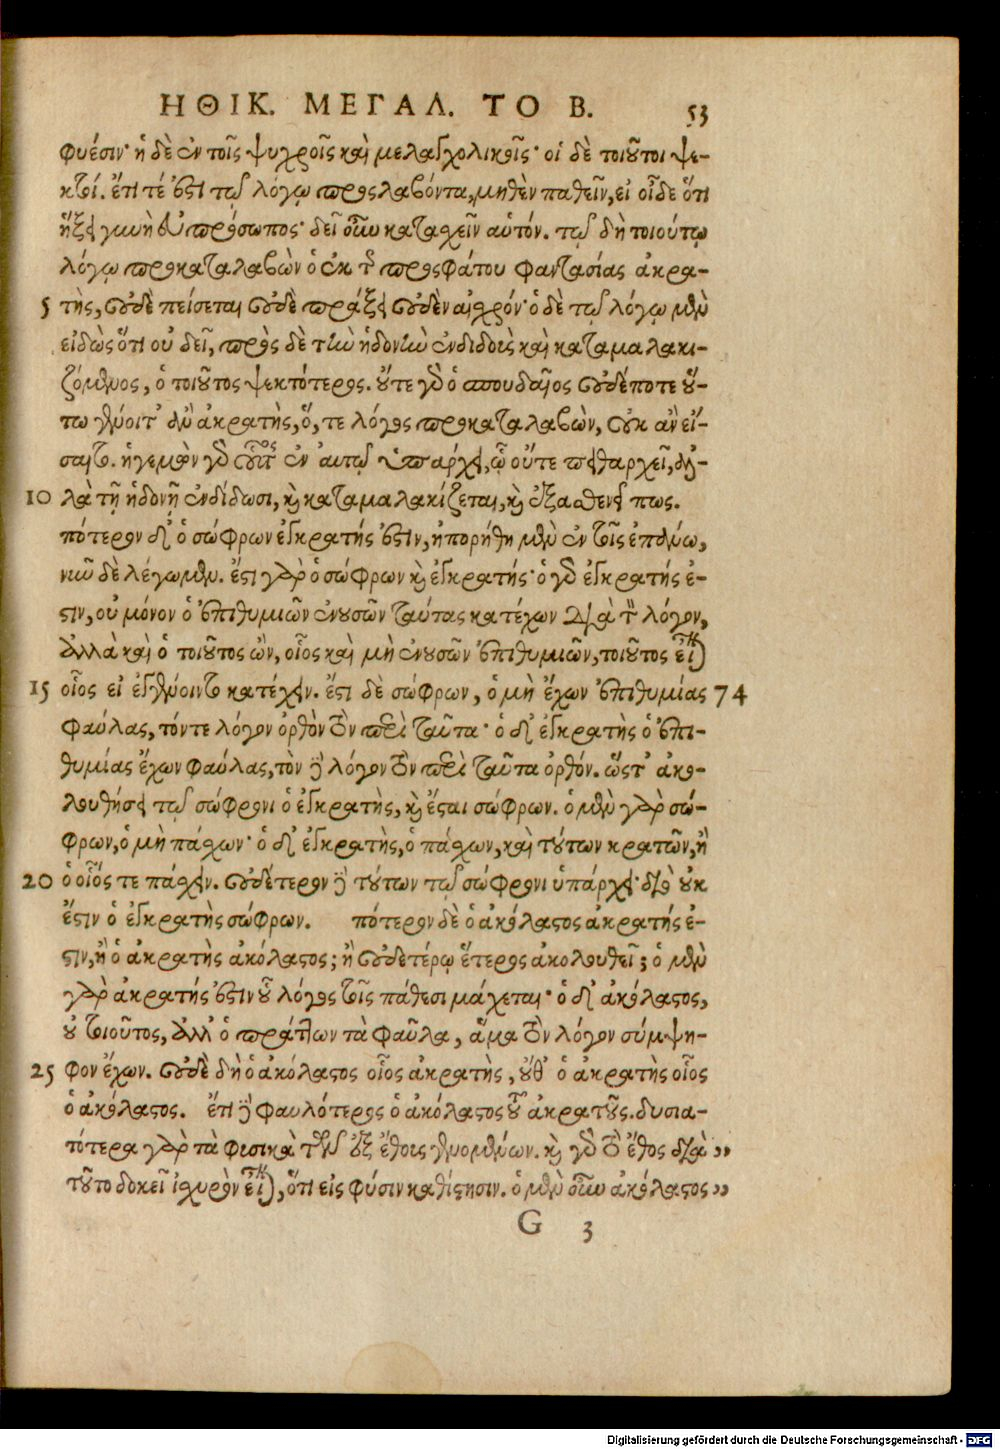 ΗΘΙΚ. ΜΕΓΑΛ. ΤΟ Β. 53
φυέσιν· ἡ δὲ ἐν τοῖς ψυχροῖς καὶ μελαγχολικοῖς· οἱ δὲ τοιοῦτοι ψε-
κτοί. ἔτι τέ ἐστι τῷ λόγῳ προςλαβόντα, μηθὲν παθεῖν, εἰ οἶδε ὅτι
ἥξει γυνὴ εὐπρόσωπος· δεῖ οὖν καταχεῖν αὑτόν. τῷ δὴ τοιούτῳ
λόγῳ προκαταλαβὼν ὁ ἐκ τῆς προςφάτου φαντασίας ἀκρα-
5 τὴς, οὐδὲ πείσεται οὐδὲ πράξει οὐδὲν αἰχρόν· ὁ δὲ τῷ λόγῳ μὲν
εἰδὼς ὅτι οὐ δεῖ, πρὸς δὲ τὴν ἡδονὴν ἐνδιδοὺς καὶ καταμαλακι-
ζόμενος, ὁ τοιοῦτος ψεκτότερος. οὔτε γὰρ ὁ σπουδαῖος οὐδέποτε οὕ-
τω γένοιτ' ἂν ἀκρατὴς, ὅ, τε λόγος προκαταλαβὼν, οὐκ ἂν εἴ-
σαιτο. ἡγεμὼν γὰρ οὗτος ἐν αὐτῷ ὑπάρχει, ᾧ οὔτε πειθαρχεῖ, ἀλ-
10 λὰ τῇ ἡδονῇ ἐνδίδωσι, καὶ καταμαλακίζεται, καὶ ἐξαθενεῖ πως.
πότερον δ' ὁ σώφρων ἐγκρατής ἐστιν, ἠπορήθη μὲν ἐν τοῖς ἐπάνω,
νῦν δὲ λέγωμεν. ἔστι γὰρ ὁ σώφρων καὶ ἐγκρατής· ὁ γὰρ ἐγκρατής ἐ-
στιν, οὐ μόνον ὁ ἐπιθυμιῶν ἐνουσῶν ταύτας κατέχων διὰ τὸν λόγον,
ἀλλὰ καὶ ὁ τοιοῦτος ὢν, οἷος καὶ μὴ ἐνουσῶν ἐπιθυμιῶν, τοιοῦτος εἶναι
15 οἷος εἰ ἐγγένοιντο κατέχειν. ἔστι δὲ σώφρων, ὁ μὴ ἔχων ἐπιθυμίας 74
φαύλας, τόν τε λόγον ὀρθὸν τὸν περὶ ταῦτα· ὁ δ' ἐγκρατὴς ὁ ἐπι-
θυμίας ἔχων φαύλας, τὸν δὲ λόγον τὸν περὶ ταῦτα ὀρθόν. ὥστ' ἀκο-
λουθήσει τῷ σώφρονι ὁ ἐγκρατὴς, καὶ ἔσται σώφρων. ὁ μὲν γὰρ σώ-
φρων, ὁ μὴ πάχων· ὁ δ' ἐγκρατὴς, ὁ πάχων, καὶ τούτων κρατῶν, ἢ
20 ὁ οἷός τε πάχειν. οὐδέτερον δὲ τούτων τῷ σώφρονι ὑπάρχει· διὸ οὐκ
ἔστιν ὁ ἐγκρατὴς σώφρων. πότερον δὲ ὁ ἀκόλαστος ἀκρατής ἐ-
στιν, ἢ ὁ ἀκρατὴς ἀκόλαστος; ἢ οὐδετέρῳ ἕτερος ἀκολουθεῖ; ὁ μὲν
γὰρ ἀκρατής ἐστιν οὗ λόγος τοῖς πάθεσι μάχεται· ὁ δ' ἀκόλαστος,
οὐ τοιοῦτος, ἀλλ' ὁ πράττων τὰ φαῦλα, ἅμα τὸν λόγον σύμψη-
25 φον ἔχων. οὐδὲ δὴ ὁ ἀκόλαστος οἷος ἀκρατὴς, οὔθ' ὁ ἀκρατὴς οἷος
ὁ ἀκόλαστος. ἔτι δὲ φαυλότερος ὁ ἀκόλαστος τοῦ ἀκρατοῦς. δυσια-
τότερα γὰρ τὰ φισικὰ τῶν ἐξ ἔθους γενομένων. καὶ γὰρ τὸ ἔθος διὰ ,,
τοῦτο δοκεῖ ἰχυρὸν εἶναι, ὅτι εἰς φύσιν καθίστησιν. ὁ μὲν οὖν ἀκόλαστος ,,
G 3
Digitalisierung gefördert durch die Deutsche Forschungsgemeinschaft - DFG